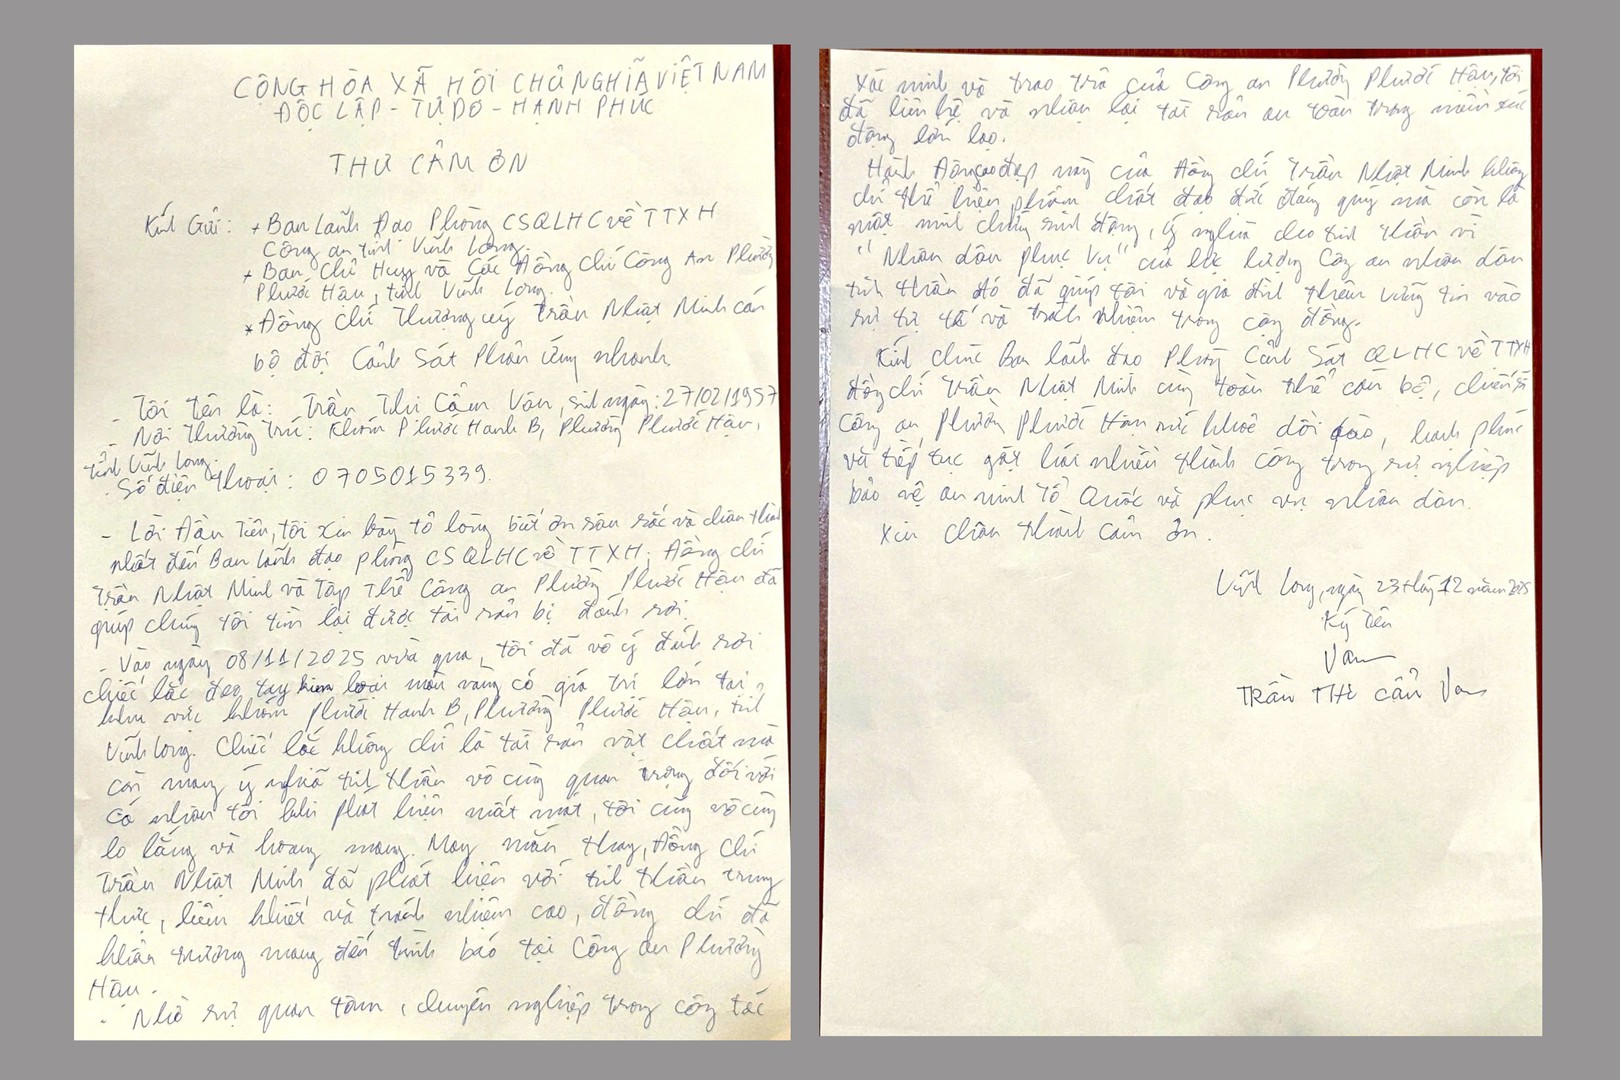 CỘNG HÒA XÃ HỘI CHỦ NGHĨA VIỆT NAM
ĐỘC LẬP - TỰ DO - HẠNH PHÚC
THƯ CẢM ƠN
Kính Gửi: + Ban Lãnh Đạo Phòng CSQLHC về TTXH
Công an tỉnh Vĩnh Long.
+ Ban Chỉ Huy và Các Đồng Chí Công An Phường
Phước Hậu, tỉnh Vĩnh Long.
* Đồng Chí Thượng uý Trần Nhật Minh cán
bộ đội Cảnh Sát Phản Ứng nhanh.
- Tôi Tên là: Trần Thị Cẩm Vân, sinh ngày: 27/02/1957
- Nơi Thường Trú: Khóm Phước Hanh B, Phường Phước Hậu,
tỉnh Vĩnh Long.
- Số điện thoại: 0705015339.
- Lời Đầu Tiên, tôi xin bày tỏ lòng biết ơn sâu sắc và chân thành
nhất đến Ban Lãnh đạo phòng CSQLHC về TTXH, Đồng chí
Trần Nhật Minh và Tập Thể Công an Phường Phước Hậu đã
giúp chúng tôi tìm lại được tài sản bị đánh rơi.
- Vào ngày 08/11/2025 vừa qua, tôi đã vô ý đánh rơi
chiếc lắc đeo tay kim loại màu vàng có giá trị lớn tại
khu vực khóm Phước Hanh B, Phường Phước Hậu, tỉnh
Vĩnh Long. Chiếc lắc không chỉ là tài sản vật chất mà
còn mang ý nghĩa tinh thần vô cùng quan trọng đối với
cá nhân tôi khi phát hiện mất mát, tôi cũng vô cùng
lo lắng và hoang mang. May mắn thay, Đồng Chí
Trần Nhật Minh đã phát hiện với tinh thần trung
thực, liêm khiết và trách nhiệm cao, đồng chí đã
khẩn trương mang đến trình báo tại Công an Phường
Hậu.
- Nhờ sự quan tâm, chuyên nghiệp trong công tác
xác minh và trao trả của Công an Phường Phước Hậu, tôi
đã liên hệ và nhận lại tài sản an toàn trong niềm xúc
động lớn lao.
Hành động cao đẹp này của đồng chí Trần Nhật Minh không
chỉ thể hiện phẩm chất đạo đức đáng quý mà còn là
một minh chứng sinh động, ý nghĩa cho tinh thần vì
"Nhân dân phục vụ" của lực lượng Công an nhân dân
tinh thần đó đã giúp tôi và gia đình thêm vững tin vào
sự tử tế và trách nhiệm trong cộng đồng.
Kính chúc Ban lãnh đạo Phòng Cảnh Sát QLHC về TTXH
đồng chí Trần Nhật Minh cùng toàn thể cán bộ, chiến sĩ
Công an Phường Phước Hậu sức khoẻ dồi dào, hạnh phúc
và tiếp tục gặt hái nhiều thành công trong sự nghiệp
bảo vệ an ninh Tổ Quốc và phục vụ nhân dân.
Xin chân thành cảm ơn.
Vĩnh Long, ngày 23 tháng 12 năm 2025
Ký tên
Van
TRẦN THỊ CẨM Vân